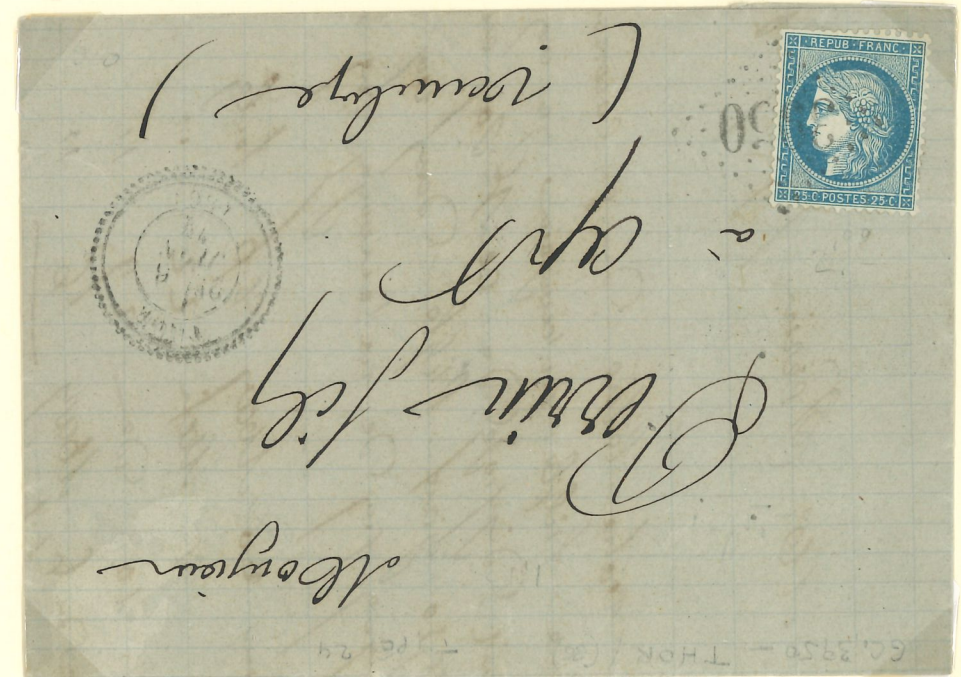 Monsieur
Perrin fils
à Apt
(Vaucluse)
REPUB·FRANC·
25·C·POSTES·25·C
THOR
GC 3950 — THOR
TYPE 24